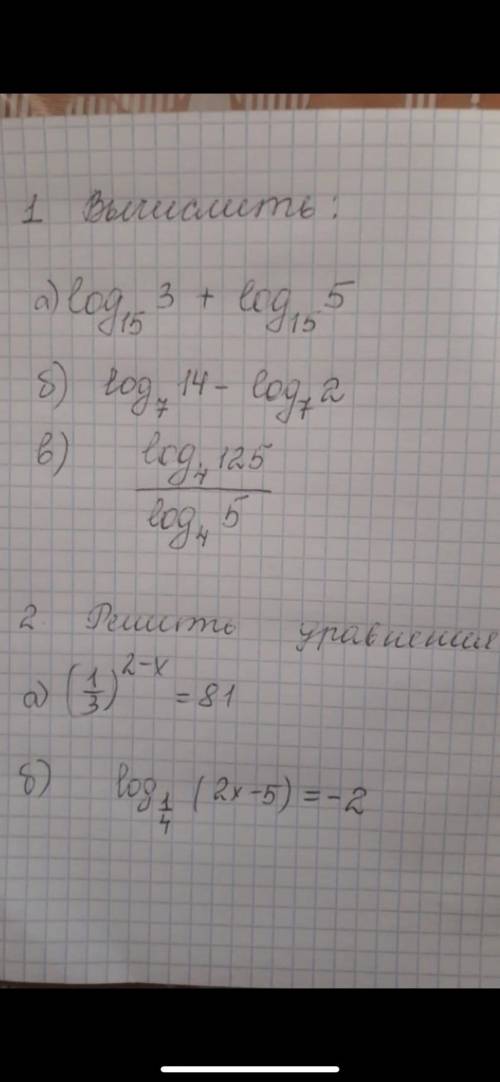 1 Вычислить:
а) log₁₅ 3 + log₁₅ 5
б) log₇ 14 - log₇ 2
в) log₄ 125 / log₄ 5
2 Решить уравнение
а) (1/3)^(2-x) = 81
б) log_(1/4) (2x-5) = -2